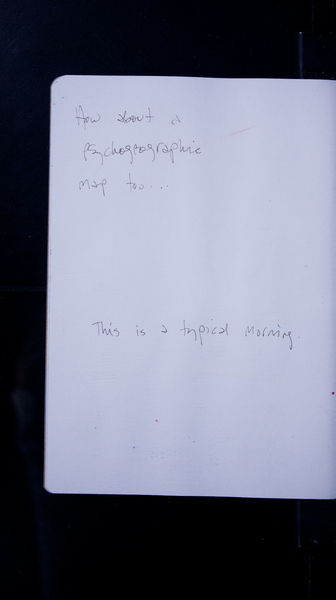 How about a
psychogeographic
map too...
This is a typical morning.